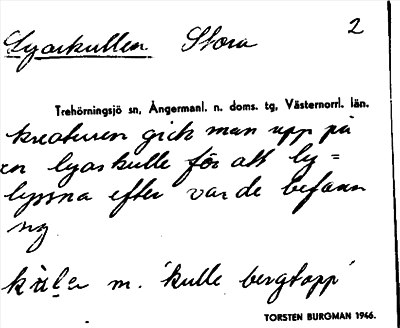 Lyarkullen Stora 2
Trehörningsjö sn, Ångermanl. n. doms. tg, Västernorrl. län.
kreaturen gick man upp på
en lyarkulle för att ly=
lyssna efter var de befann
sig
m. 'kulle bergtopp'
TORSTEN BURGMAN 1946.